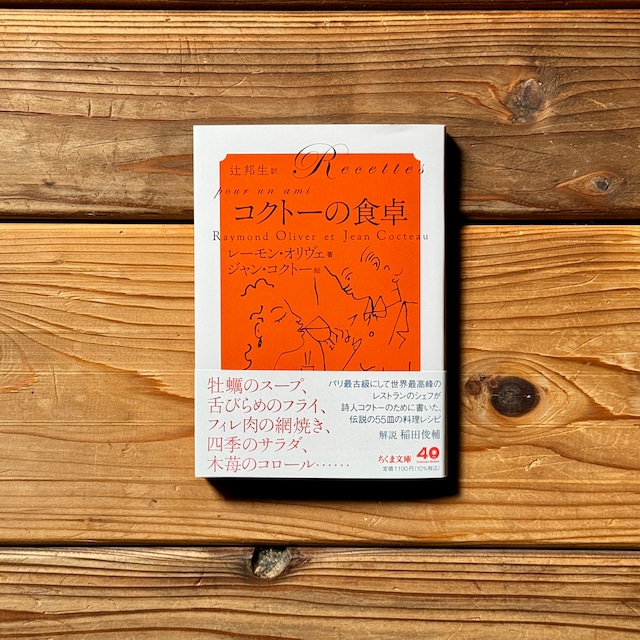 辻邦生 訳
Recettes
pour un ami
コクトーの食卓
Raymond Oliver et Jean Cocteau
レーモン・オリヴェ 著
ジャン・コクトー 絵
牡蠣のスープ、
舌びらめのフライ、
フィレ肉の網焼き、
四季のサラダ、
木苺のコロール……
パリ最古級にして世界最高峰の
レストランのシェフが
詩人コクトーのために書いた、
伝説の55皿の料理レシピ
解説 稲田俊輔
ちくま文庫 40
定価1100円(10%税込)